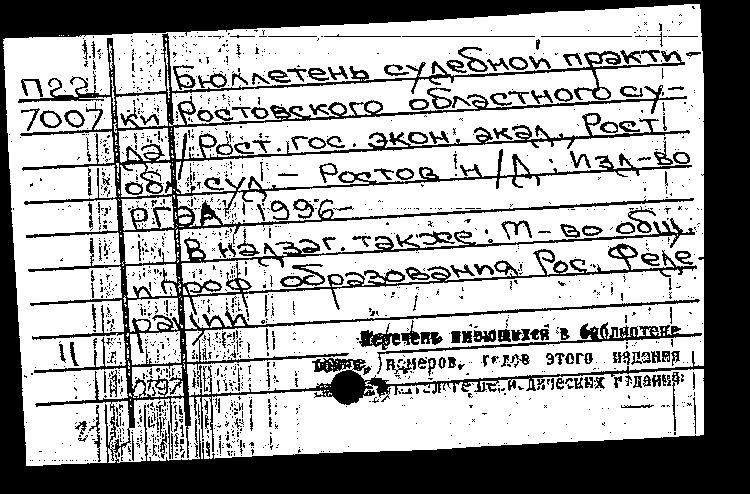 П22 Бюллетень судебной практи-
7007 ки Ростовского областного су-
да / Рост. гос. экон. акад., Рост.
обл. суд. – Ростов н/Д : Изд-во
РГЭА, 1996-
В надзаг. также: М-во общ.
и проф. образования Рос. Феде-
рации.
11 Перечень имеющихся в библиотеке
номеров, годов этого издания